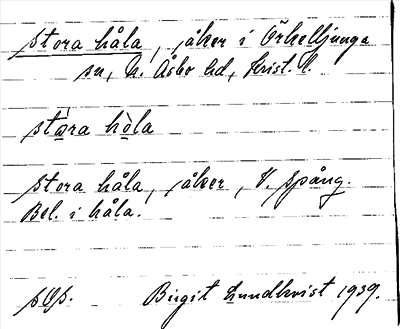 Stora håla, åker i Örkelljunga
sn, N. Åsbo hd, Krist. l.
stora hòla
Stora håla, åker, V. Spång.
Bel. i håla.
Birgit Lundkvist 1939.